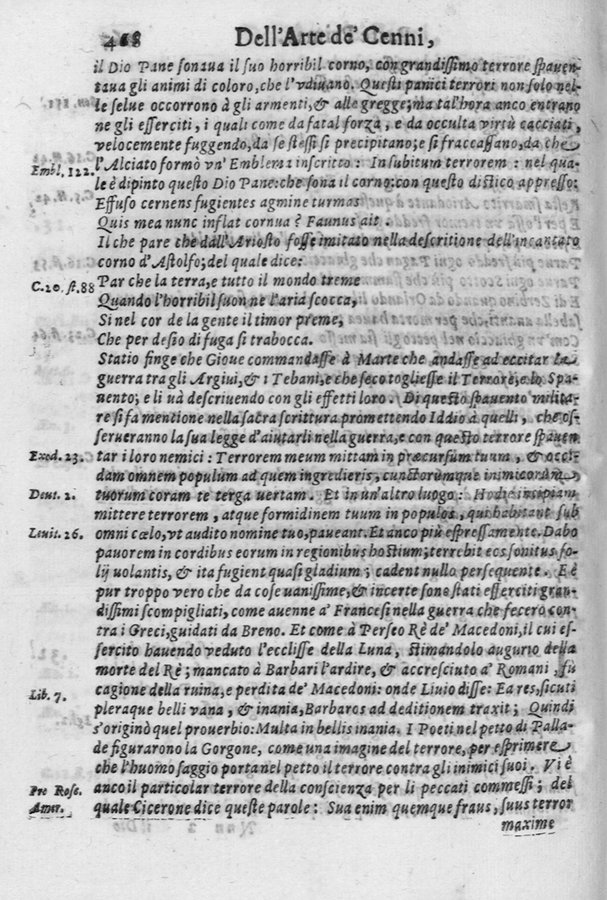 468 Dell'Arte de' Cenni,
il Dio Pane sonaua il suo horribil corno, con grandissimo terrore spauen-
taua gli animi di coloro, che l'vdiuano. Questi panici terrori non solo nel-
le selue occorrono à gli armenti, & alle gregge; ma tal'hora anco entrano
ne gli esserciti, i quali come da fatal forza, e da occulta virtù cacciati,
velocemente fuggendo, da se stessi si precipitano; e si fraccassano, da che
Embl. 122. l'Alciato formò vn' Emblema inscritto: In subitum terrorem: nel qua-
le è dipinto questo Dio Pane: che sona il corno: con questo distico appresso:
Effuso cernens fugientes agmine turmas
Quis mea nunc inflat cornua? Faunus ait.
Il che pare che dall'Ariosto fosse imitato nella descritione dell'incantato
corno d'Astolfo; del quale dice:
C. 20. st. 88 Par che la terra, e tutto il mondo treme
Quando l'horribil suon ne l'aria scocca,
Si nel cor de la gente il timor preme,
Che per desio di fuga si trabocca.
Statio finge che Gioue commandasse à Marte che andasse ad eccitar la
guerra tra gli Argiui, & i Tebani, e che seco togliesse il Terrore, e lo Spa-
nento; e li uà descriuendo con gli effetti loro. Di questo spauento milita-
re si fa mentione nella sacra scrittura promettendo Iddio à quelli, che os-
serueranno la sua legge d'aiutarli nella guerra, e con questo terrore spauen-
Exod. 23. tar i loro nemici: Terrorem meum mittam in præcursum tuum, & occi-
dam omnem populum ad quem ingredieris, cunctorumque inimicorum
Deut. 2. tuorum coram te terga uertam. Et in un'altro luogo: Hodie incipiam
mittere terrorem, atque formidinem tuum in populos, qui habitant sub
Leuit. 26. omni cœlo, vt audito nomine tuo, paueant. Et anco più espressamente. Dabo
pauorem in cordibus eorum in regionibus hostium; terrebit eos sonitus fo-
lij volantis, & ita fugient quasi gladium; cadent nullo persequente. E è
pur troppo vero che da cose vanissime, & incerte sono stati esserciti gran-
dissimi scompigliati, come auenne a' Francesi nella guerra che fecero con-
tra i Greci, guidati da Breno. Et come à Perseo Rè de' Macedoni, il cui es-
sercito hauendo veduto l'ecclisse della Luna, stimandolo augurio della
morte del Rè; mancato à Barbari l'ardire, & accresciuto a' Romani, fù
cagione della ruina, e perdita de' Macedoni: onde Liuio disse: Ea res, sicuti
Lib. 7. pleraque belli vana, & inania, Barbaros ad deditionem traxit; Quindi
s'originò quel prouerbio: Multa in bellis inania. I Poeti nel petto di Palla-
de figurarono la Gorgone, come una imagine del terrore, per esprimere
che l'huomo saggio porta nel petto il terrore contra gli inimici suoi. Vi è
Pro Rosc. anco il particolar terrore della conscienza per li peccati commessi; del
Amer. quale Cicerone dice queste parole: Sua enim quemque fraus, suus terror
maxime